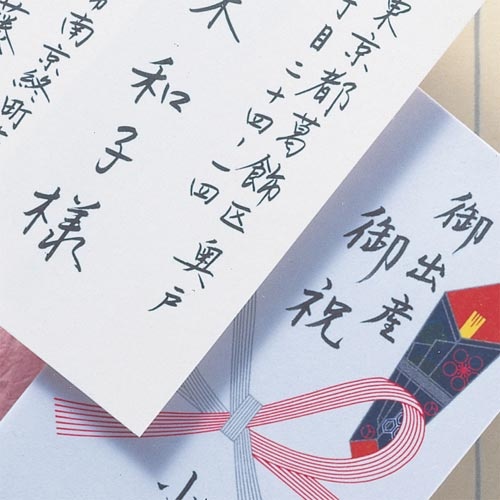 東京都葛飾区奥戸
丁目二十四-一四
木和子様
南京終町
藤
御出産
御祝